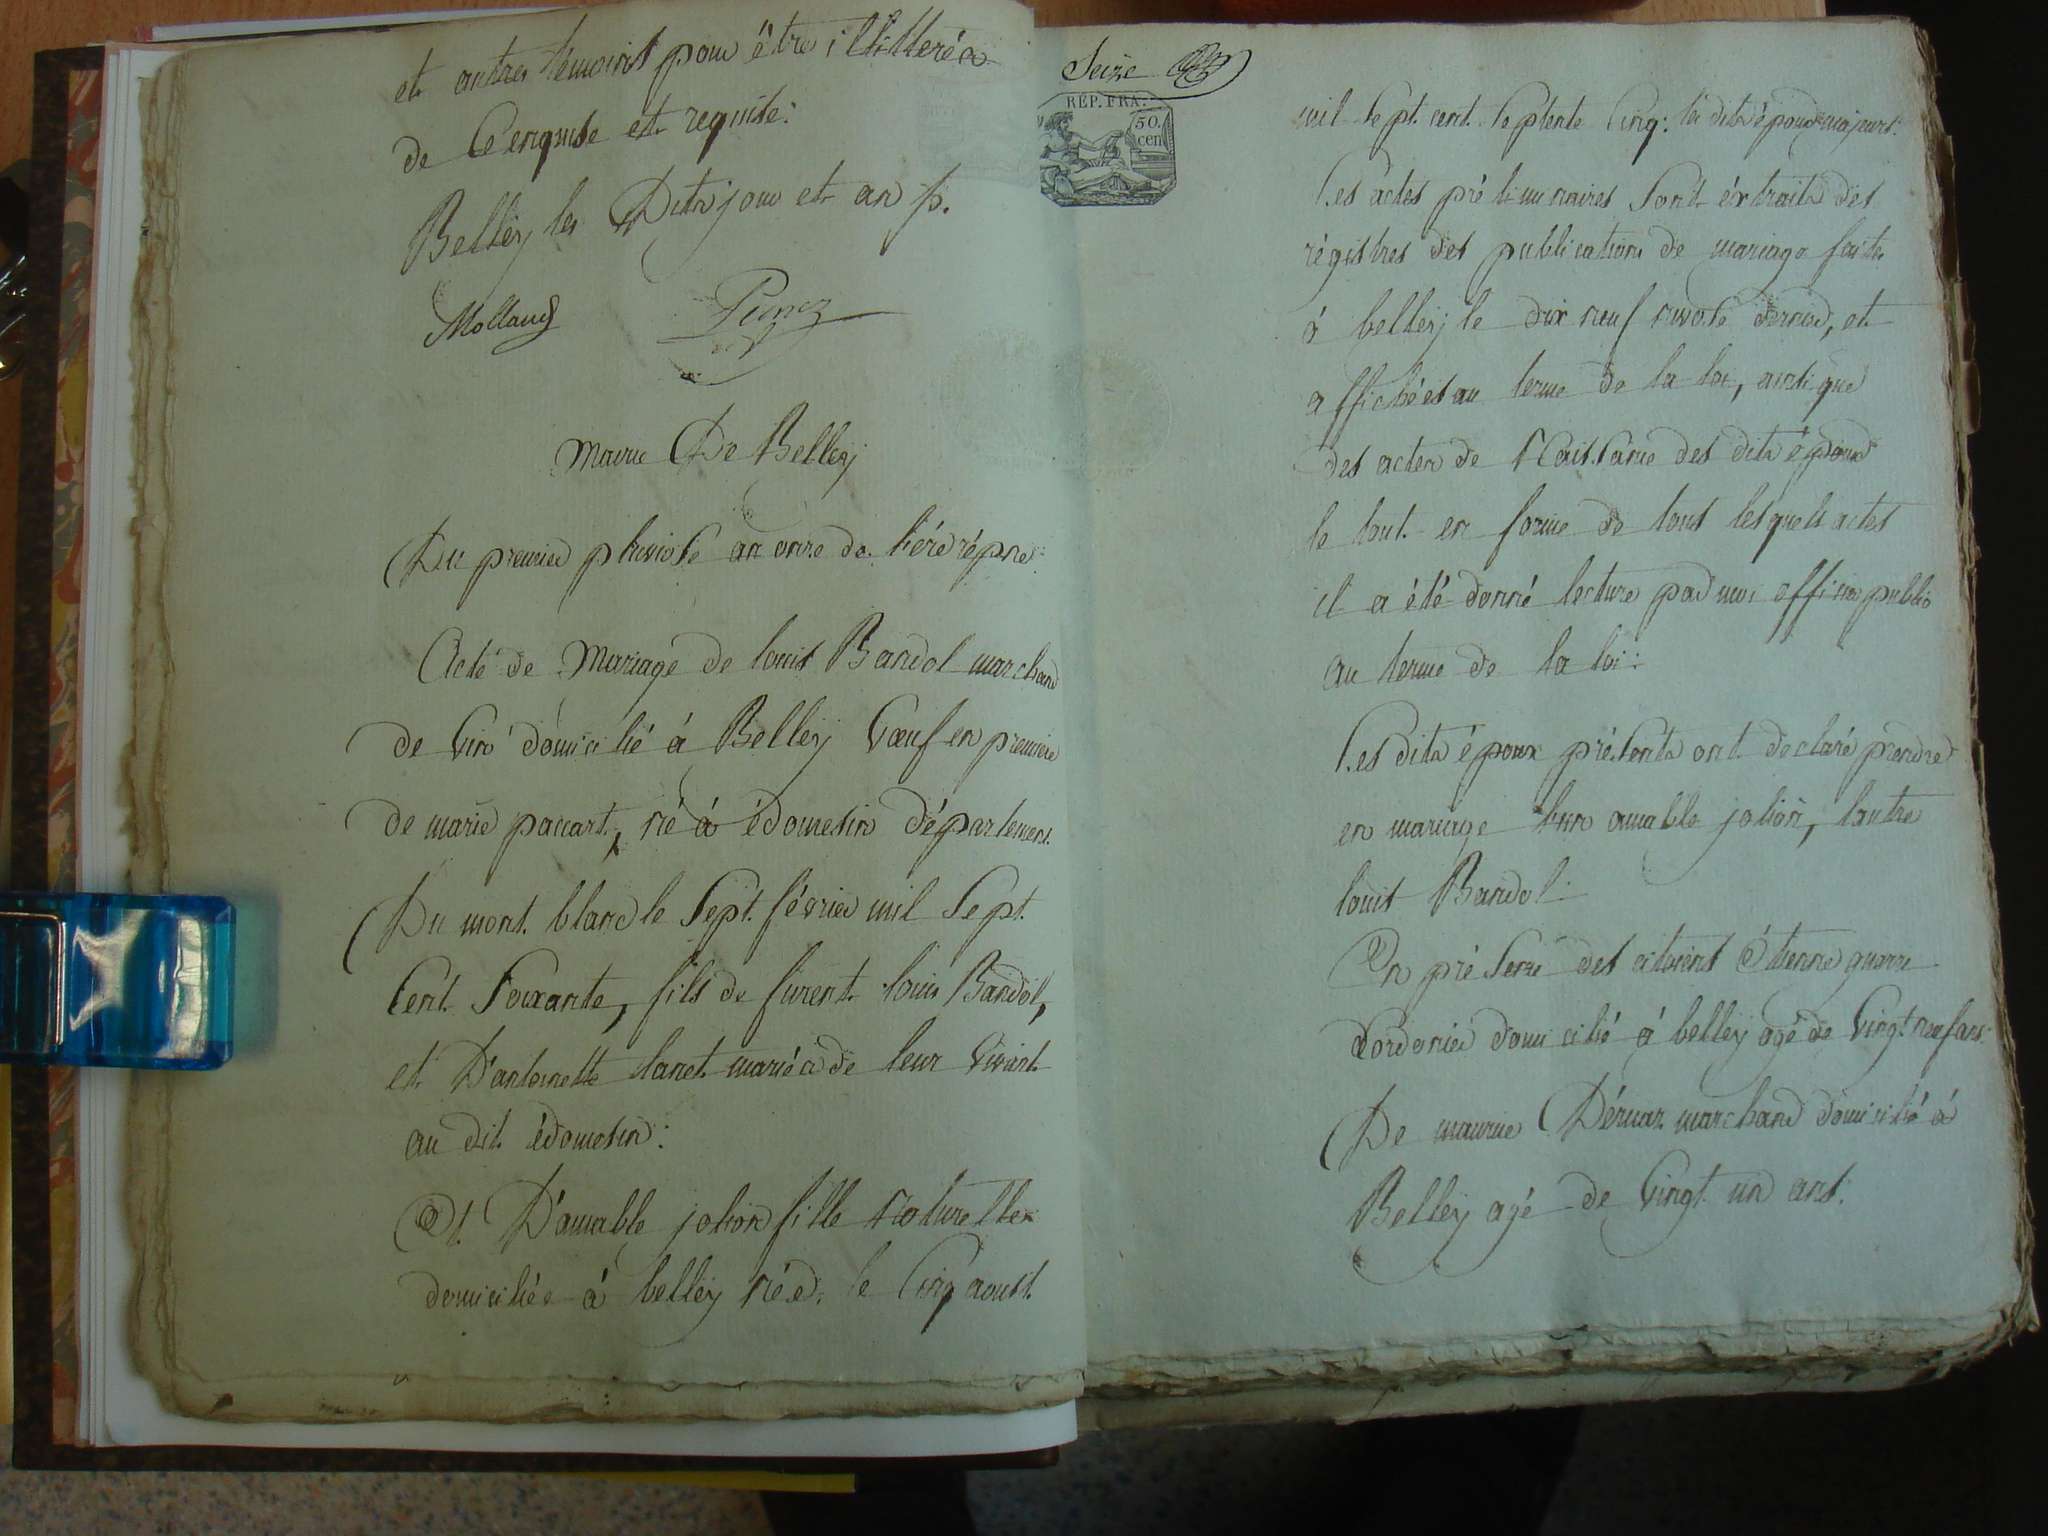 et autres témoins pour être illitterés
de Ce enquise et requise:
Belley les Dits jour et an p.
Mollaud
Mairie De Belley
Du premier pluviose an onze de. l'ére répne:
Acte de Mariage de louis Bandol marchand
de vin domicilié à Belley Vœuf en premiere
de marie paccart, né à édomesin département
Du mont. blanc le Sept. février mil Sept.
Cent. Soixante, fils de furent. louis Bandol,
et D'antoinette lanet. mariés de leur Vivant.
au dit édomesin:
Et. D'amable jolion fille naturelle
domiciliée à belley née. le Cinq aoust.
Seize
RÉP. FRA.
50.
cen
mil Sept. cent. Septente Cinq: les dits époux majeurs:
Les actes préliminaires Sont éxtraits des
régistres des publications de mariage faites
à belley le dix neuf nivose dernier, et
affichées au terme de la loi, ainsi que
des actes de Naissance des dits époux
le tout. en forme de tous lesquels actes
il a été donné lecture par moi officier public
au terme de la loi:
Les dits époux présents ont. déclaré prendre
en mariage l'un amable jolion, lautre
louis Bandol.
En présence des citoiens étienne guerre
Cordonier domicilié à belley agé de Vingt. neuf ans:
De maurice Dérvaz marchand domicilié à
Belley agé de Vingt. un ans.